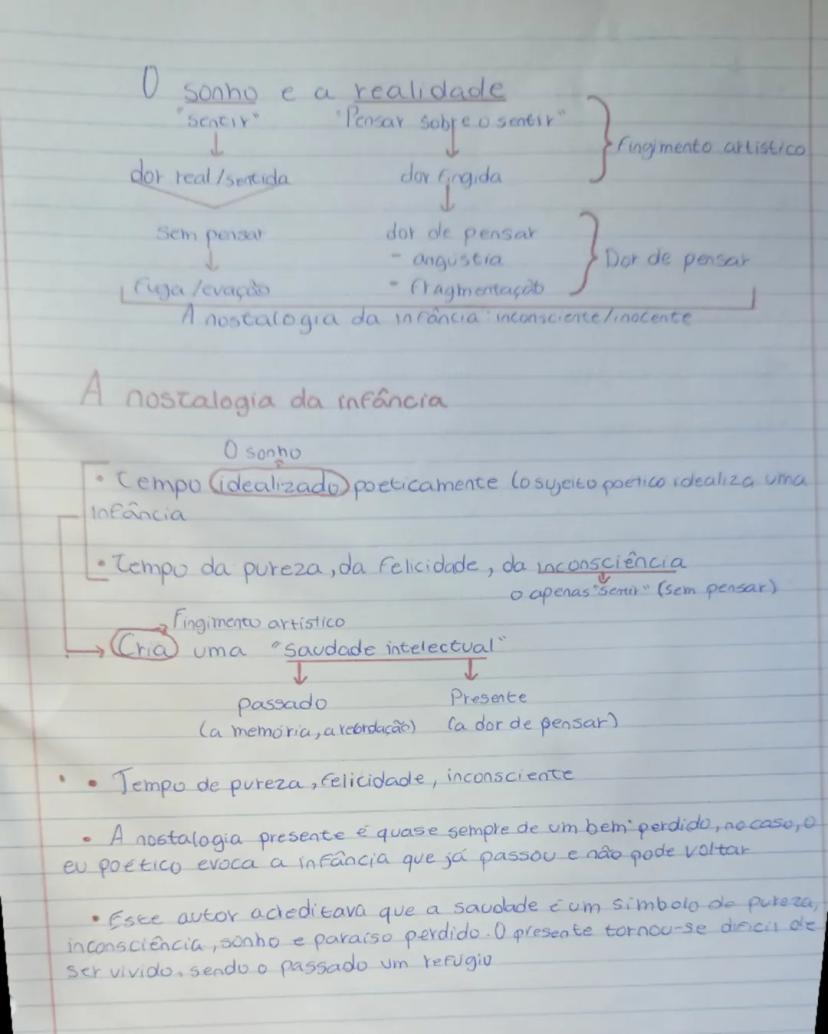 O sonho e a realidade
"sentir" "Pensar sobre o sentir"
Fingimento artistico
dor real/sentida dor fingida
sem pensar dor de pensar
- angústia Dor de pensar
fuga/evação - fragmentação
A nostalogia da infância inconsciente/inocente
A nostalogia da infância
O sonho
• Tempo idealizado poeticamente (o sujeito poetico idealiza uma
infância
• Tempo da pureza, da felicidade, da inconsciência
o apenas "sentir" (sem pensar)
Fingimento artistico
Cria uma "saudade intelectual"
passado Presente
(a memória, a recordação) (a dor de pensar)
• • Tempo de pureza, felicidade, inconsciente
• A nostalogia presente é quase sempre de um bem perdido, no caso, o
eu poético evoca a infância que já passou e não pode voltar
• Este autor acreditava que a saudade é um simbolo de pureza,
inconsciência, sonho e paraiso perdido. O presente tornou-se dificil de
ser vivido, sendo o passado um refugio